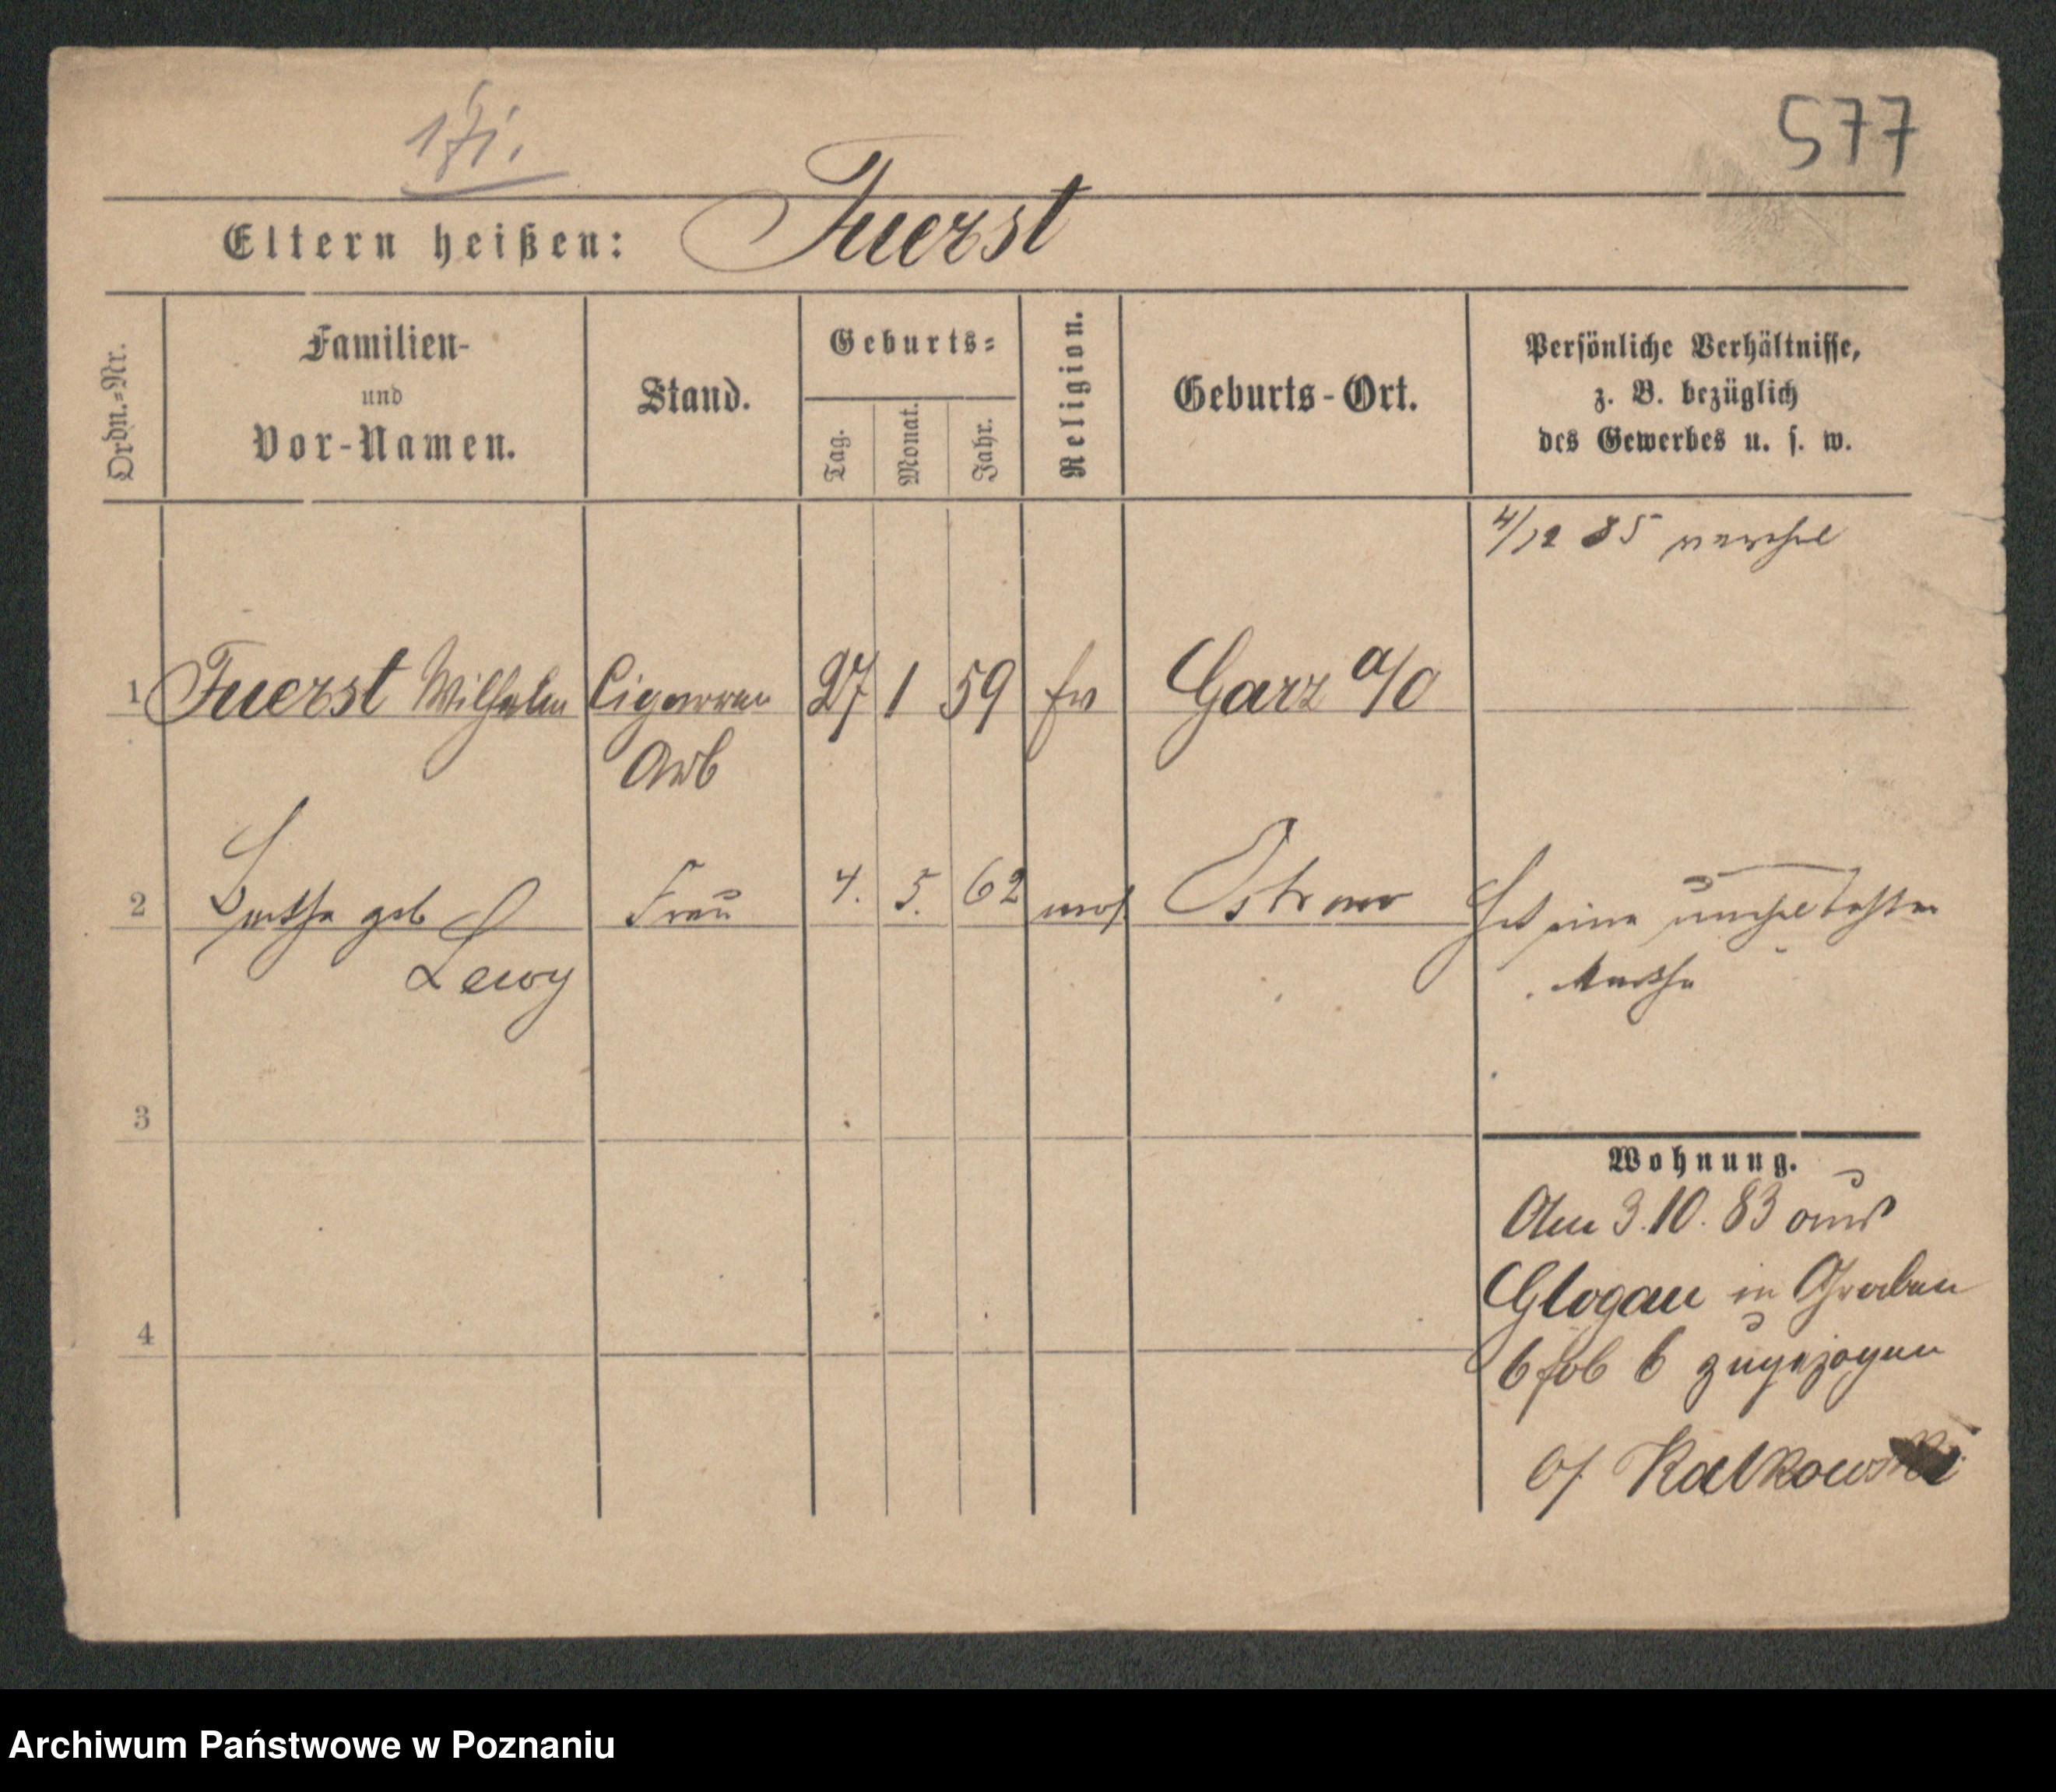 577
Eltern heißen: Fuerst
Ordn.=Nr.
Familien-
und
Vor-Namen.
Stand.
Geburts=
Tag.
Monat.
Jahr.
Religion.
Geburts-Ort.
Persönliche Verhältnisse,
z. B. bezüglich
des Gewerbes u. s. w.
4/12 85
1 Fuerst Wilhelm Cigarren 27 1 59 ev Garz a/O
Arb
2 geb Frau 4. 5. 62 mos. Ostrowo Hat eine
Lewy Martha
3
Wohnung.
Am 3.10.83 aus
Glogau in Graben
4
6 zugezogen
b/ Kalkowski
Archiwum Państwowe w Poznaniu